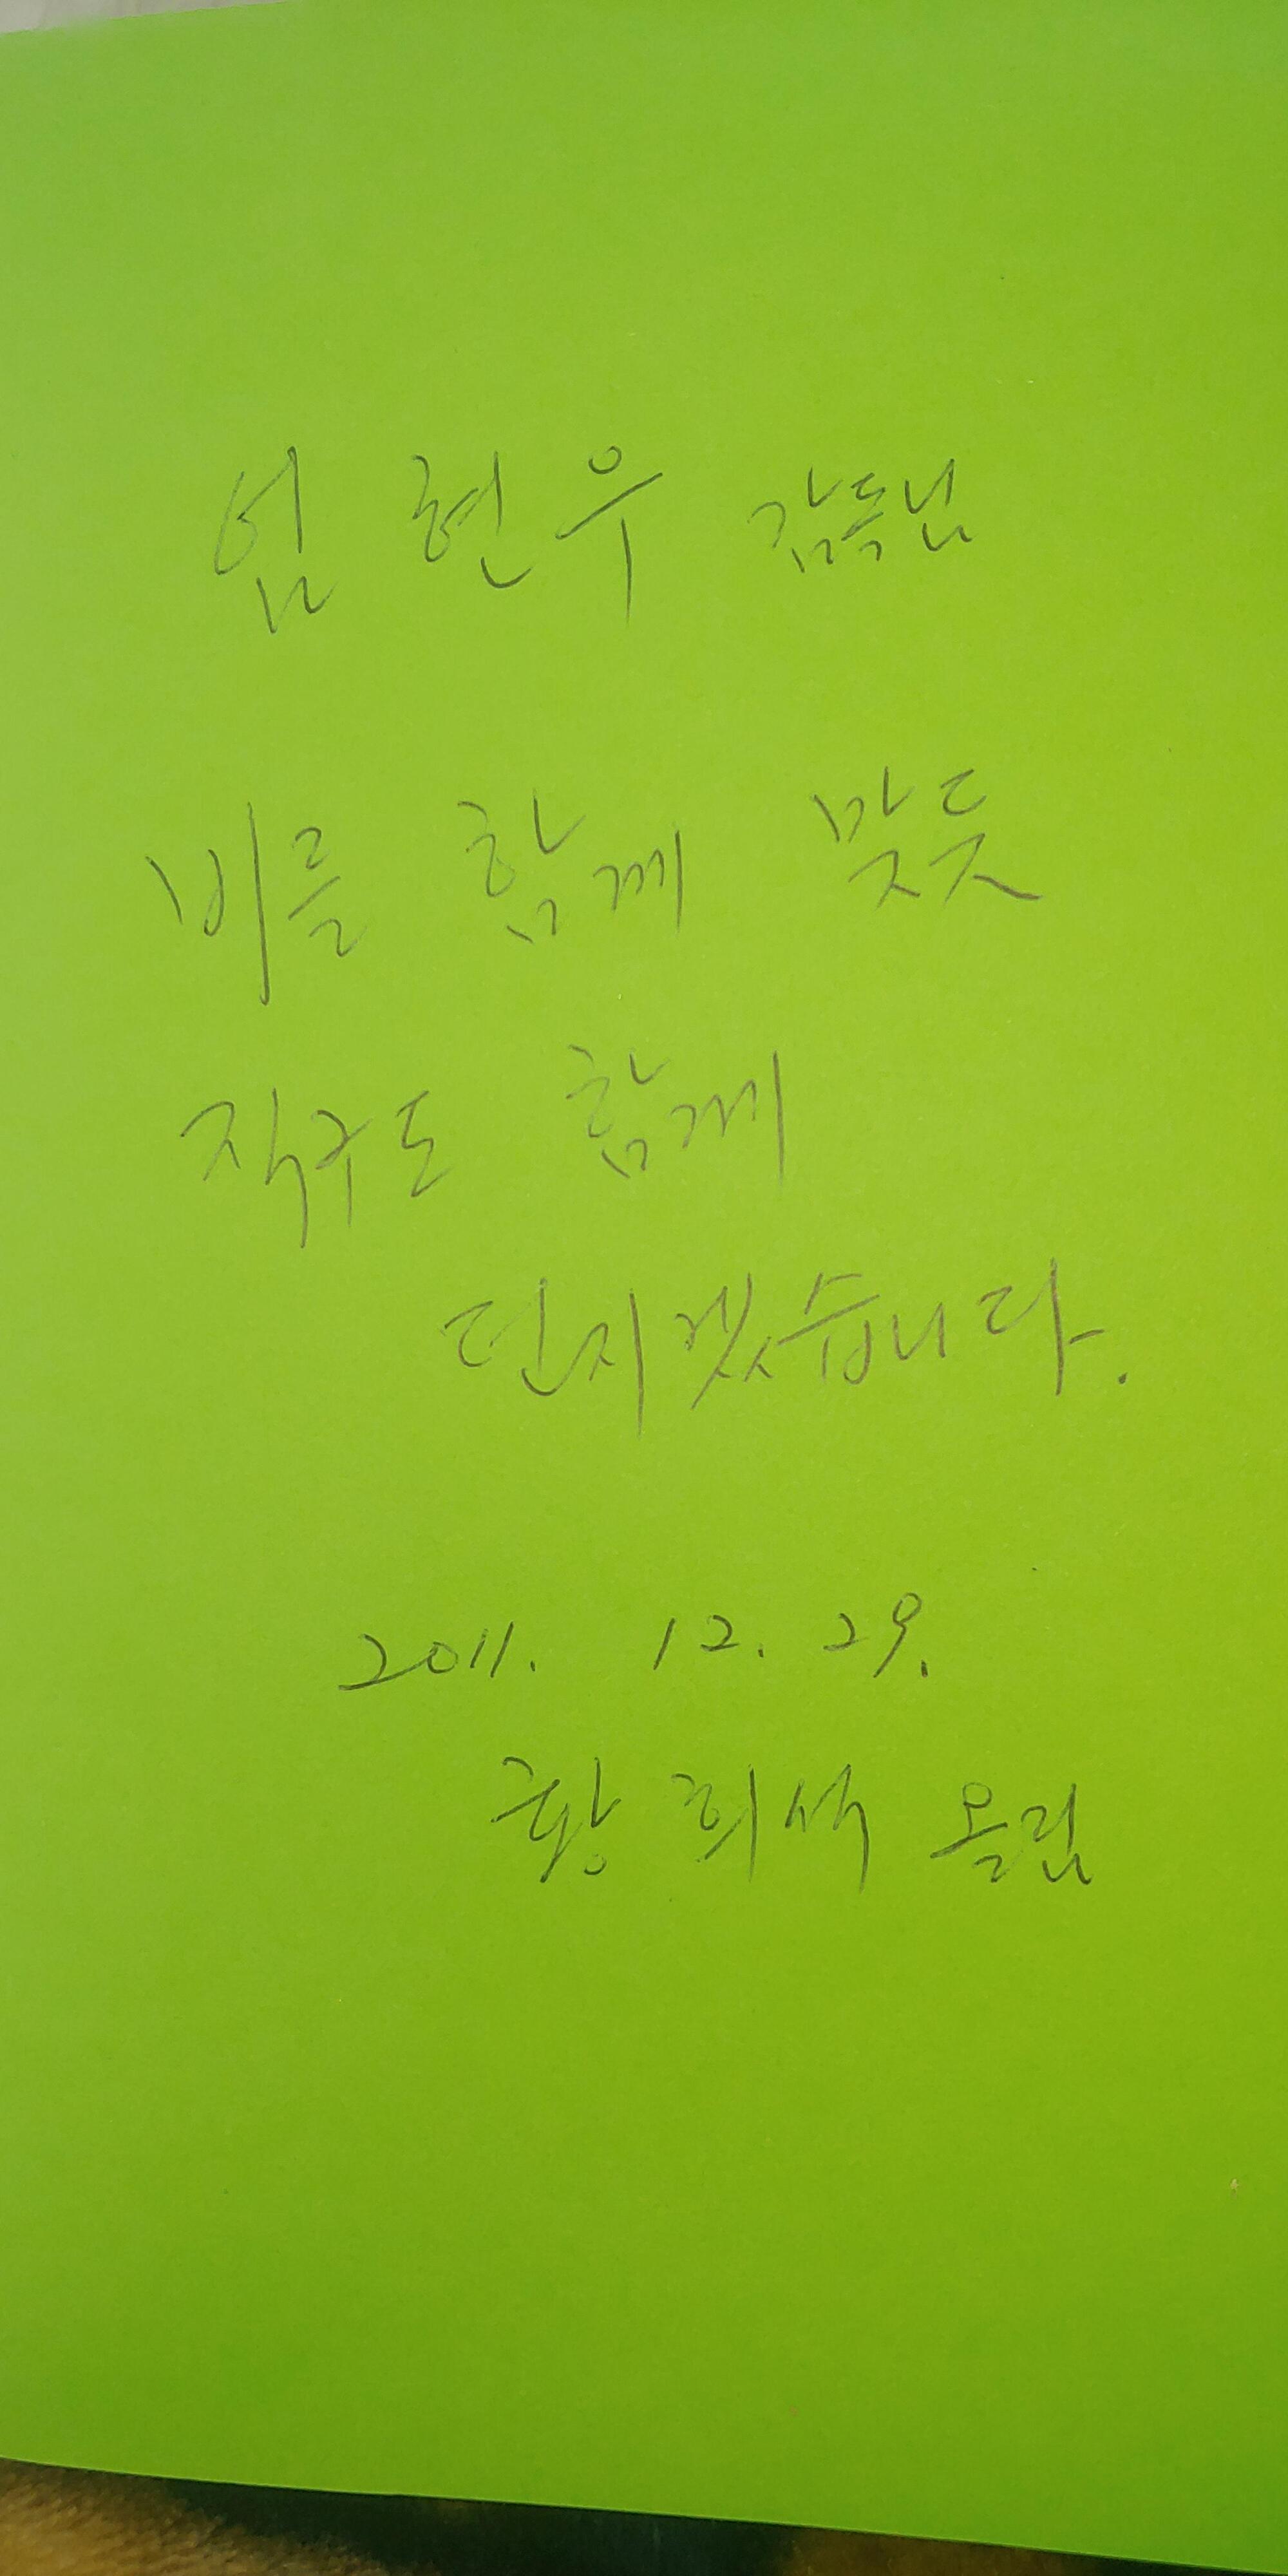 엄현우 감독님
비를 함께 맞듯
직구도 함께
던지겠습니다.
2011. 12. 29.
황희석 올림